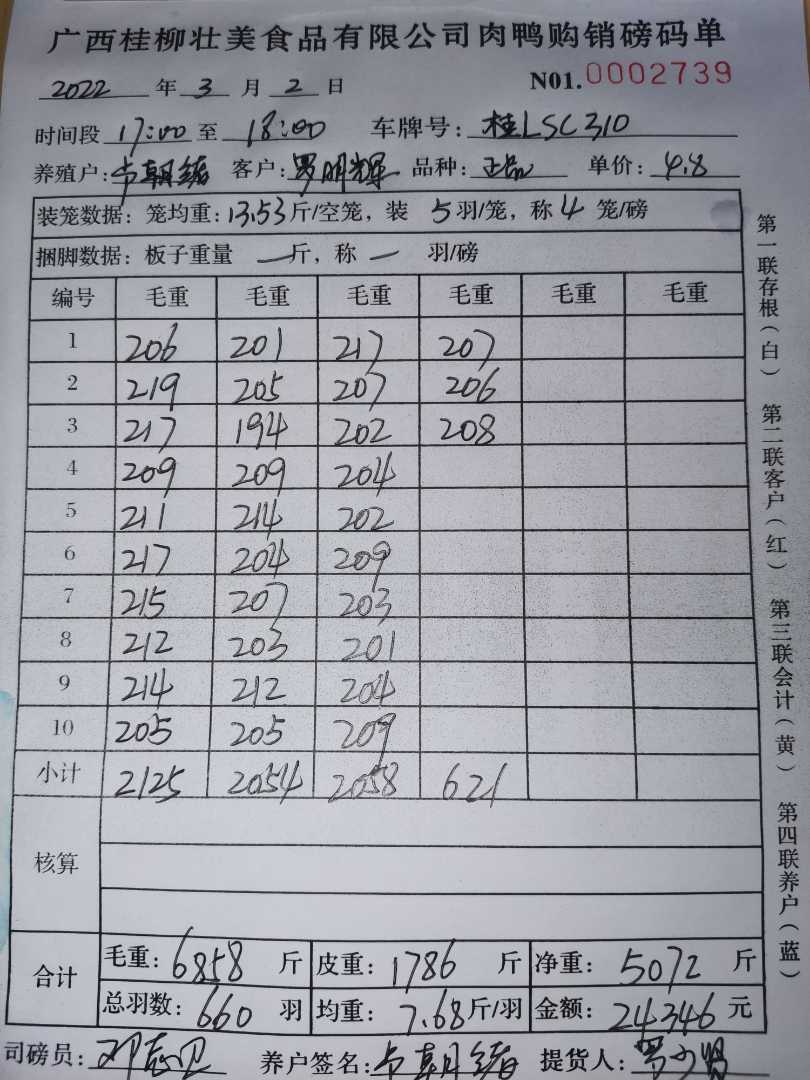 广西桂柳壮美食品有限公司肉鸭购销磅码单
2022 年 3 月 2 日 N01.0002739
时间段 17:00 至 18:00 车牌号: 桂LSC310
养殖户: 客户: 罗明辉 品种: 正品 单价: 4.8
装笼数据: 笼均重: 13.53 斤/空笼, 装 5 羽/笼, 称 4 笼/磅
捆脚数据: 板子重量 — 斤, 称 — 羽/磅
编号 毛重 毛重 毛重 毛重 毛重 毛重
1 206 201 217 207
2 219 205 207 206
3 217 194 202 208
4 209 209 204
5 211 214 202
6 217 204 209
7 215 207 203
8 212 203 201
9 214 212 204
10 205 205 209
小计 2125 2054 2058 621
核算
合计
毛重: 6858 斤 皮重: 1786 斤 净重: 5072 斤
总羽数: 660 羽 均重: 7.68 斤/羽 金额: 24346 元
司磅员: 养户签名: 提货人:
第一联存根(白) 第二联客户(红) 第三联会计(黄) 第四联养户(蓝)